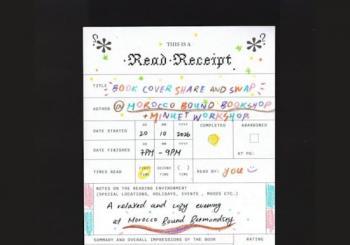 THIS IS A
Read Receipt
TITLE BOOK COVER SHARE AND SWAP
AUTHOR @ MOROCCO BOUND BOOKSHOP
+ MINKET WORKSHOP
DD MM YYYY COMPLETED ABANDONED
DATE STARTED 20 10 2026
DATE FINISHED 7PM - 9PM AT PG:
TIMES READ FIRST TIME SECOND TIME ( ) TIME READ BY: you
NOTES ON THE READING ENVIRONMENT
(SPECIAL LOCATIONS, HOLIDAYS, EVENTS, MOODS ETC.)
A relaxed and cosy evening
at Morocco Bound Bermondsey
SUMMARY AND OVERALL IMPRESSIONS OF THE BOOK RATING